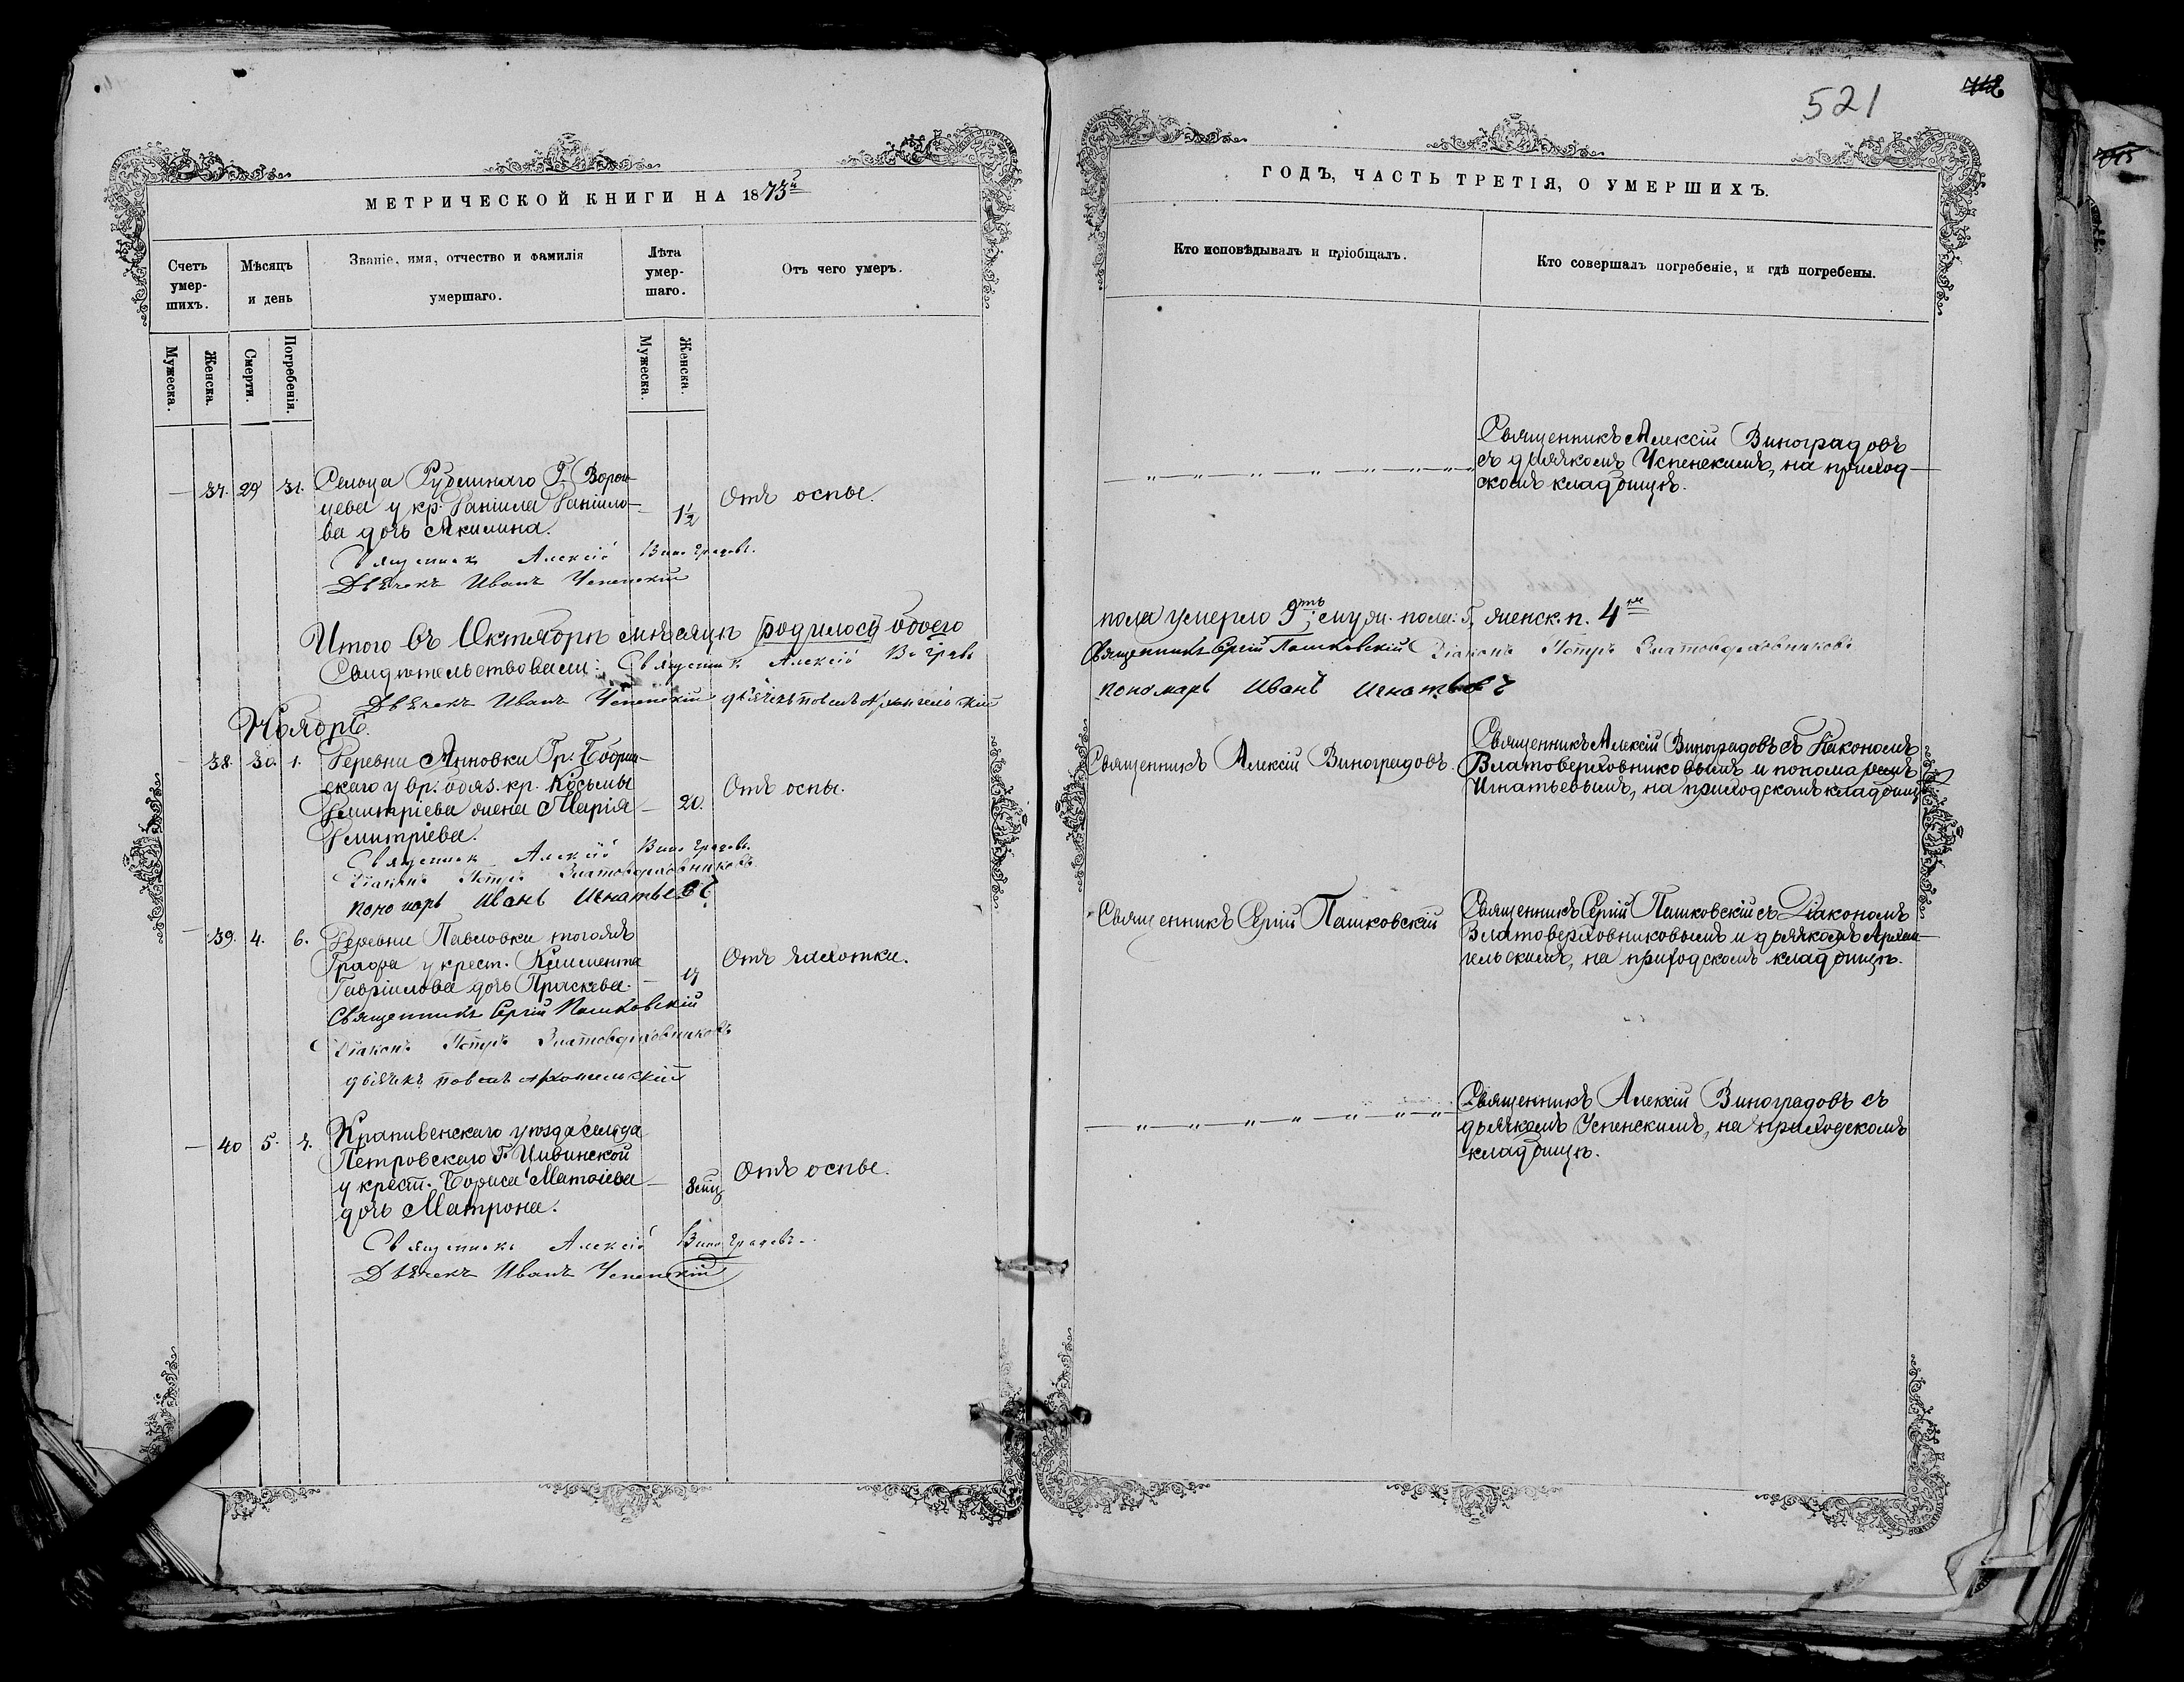 521
МЕТРИЧЕСКОЙ КНИГИ НА 1873й
Счетъ умер-шихъ.
Мѣсяцъ и день
Званіе, имя, отчество и фамилія умершаго.
Лѣта умер-шаго.
Отъ чего умеръ.
Мужеска.
Женска.
Смерти.
Погребенія.
Мужеска.
Женска.
— 37. 29 31. Сельца Рубленнаго Г. Ворон-
цева у кр. Даніила Даніило-
ва дочь Акилина.
1½
Отъ оспы.
Священникъ Алексій Виноградовъ.
Дьячекъ Иванъ Успенскій
Итого въ Октябрѣ мѣсяцѣ родилось обоего
Свидѣтельствовали: Священникъ Алексій
Дьячекъ Иванъ Успенскій дьячекъ Павелъ Архангельскій
Ноябрь.
— 38. 30. 1. Деревни Анновки Гр. Бобрин-
скаго у вр. обяз. кр. Косьмы
Димитріева жена Марія
Димитріева.
— 20.
Отъ оспы.
Священникъ Алексій Виноградовъ.
Діаконъ Петръ Златоверховниковъ
пономарь Иванъ Игнатьевъ
— 39. 4. 6. Деревни Павловки тогожъ
Графа у крест. Климента
Гавріилова дочь Праскева.
— 17
Отъ чахотки.
Священникъ Сергій Пашковскій
Діаконъ Петръ Златоверховниковъ
дьячекъ Павелъ Архангельскій
— 40 5. 7. Крапивенскаго уѣзда сельца
Петровскаго Г.
у крест. Бориса Матѳіева
дочь Матрона.
— 8 мц
Отъ оспы.
Священникъ Алексій Виноградовъ.
Дьячекъ Иванъ Успенскій
ГОДЪ, ЧАСТЬ ТРЕТІЯ, О УМЕРШИХЪ.
Кто исповѣдывалъ и пріобщалъ.
Кто совершалъ погребеніе, и гдѣ погребены.
Священникъ Алексій Виноградовъ
съ дьячкомъ Успенскимъ, на приход-
скомъ кладбищѣ.
пола умерло 9ть; муж. пола: 5, женск. п. 4ре
Священникъ Сергій Пашковскій Діаконъ Петръ Златоверховниковъ
пономарь Иванъ Игнатьевъ
Священникъ Алексій Виноградовъ.
Священникъ Алексій Виноградовъ съ Діакономъ
Златоверховниковымъ и пономаремъ
Игнатьевымъ, на приходскомъ кладбищѣ
Священникъ Сергій Пашковскій
Священникъ Сергій Пашковскій съ Діакономъ
Златоверховниковымъ и дьячкомъ Архан-
гельскимъ, на приходскомъ кладбищѣ.
Священникъ Алексій Виноградовъ съ
дьячкомъ Успенскимъ, на приходскомъ
кладбищѣ.